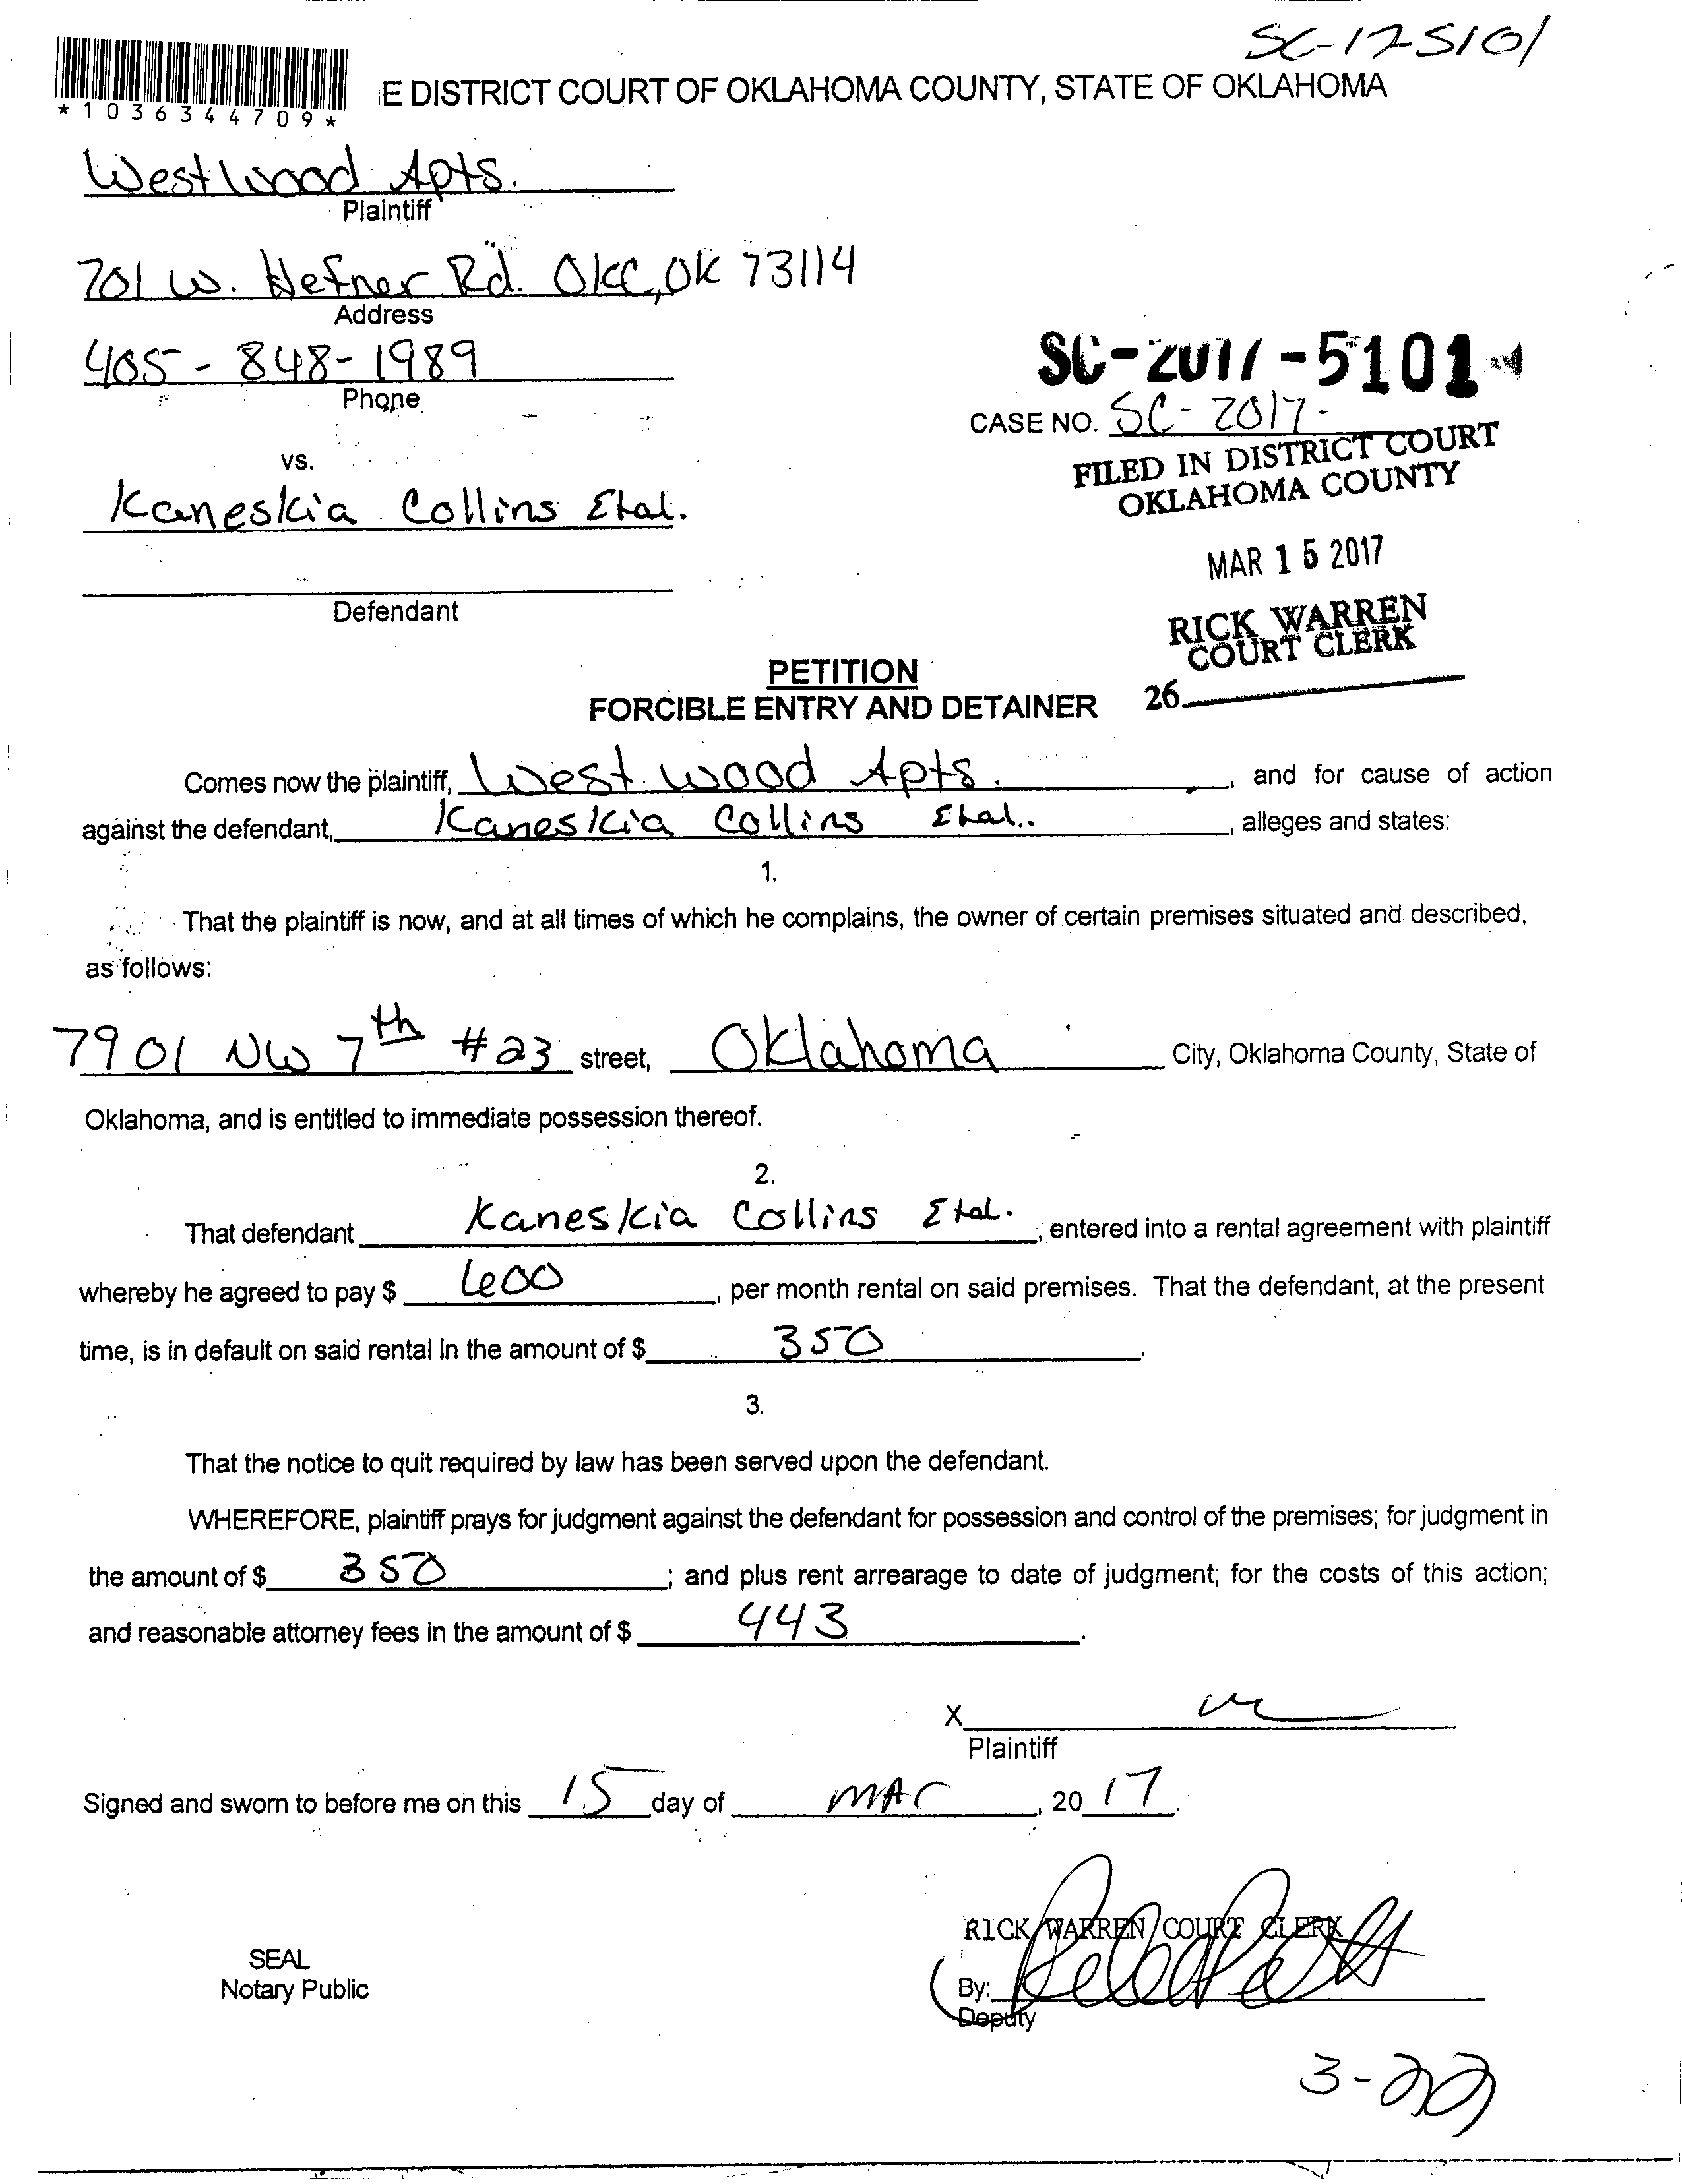 SC-17-5101
*1036344709*
E DISTRICT COURT OF OKLAHOMA COUNTY, STATE OF OKLAHOMA
Westwood Apts.
Plaintiff
701 W. Hefner Rd. OKC, OK 73114
Address
405-848-1989
Phone
SC-2017-5101
CASE NO. SC-2017-
FILED IN DISTRICT COURT
OKLAHOMA COUNTY
vs.
Kaneskia Collins Etal.
MAR 15 2017
Defendant
RICK WARREN
COURT CLERK
26
PETITION
FORCIBLE ENTRY AND DETAINER
Comes now the plaintiff, Westwood Apts. , and for cause of action
against the defendant, Kaneskia Collins Etal.. , alleges and states:
1.
That the plaintiff is now, and at all times of which he complains, the owner of certain premises situated and described,
as follows:
7901 NW 7th #23 street, Oklahoma City, Oklahoma County, State of
Oklahoma, and is entitled to immediate possession thereof.
2.
That defendant Kaneskia Collins Etal. , entered into a rental agreement with plaintiff
whereby he agreed to pay $ 600 , per month rental on said premises. That the defendant, at the present
time, is in default on said rental in the amount of $ 350 .
3.
That the notice to quit required by law has been served upon the defendant.
WHEREFORE, plaintiff prays for judgment against the defendant for possession and control of the premises; for judgment in
the amount of $ 350 ; and plus rent arrearage to date of judgment; for the costs of this action;
and reasonable attorney fees in the amount of $ 443 .
X
Plaintiff
Signed and sworn to before me on this 15 day of MAr , 20 17 .
RICK WARREN COURT CLERK
SEAL
Notary Public
By:
Deputy
3-22